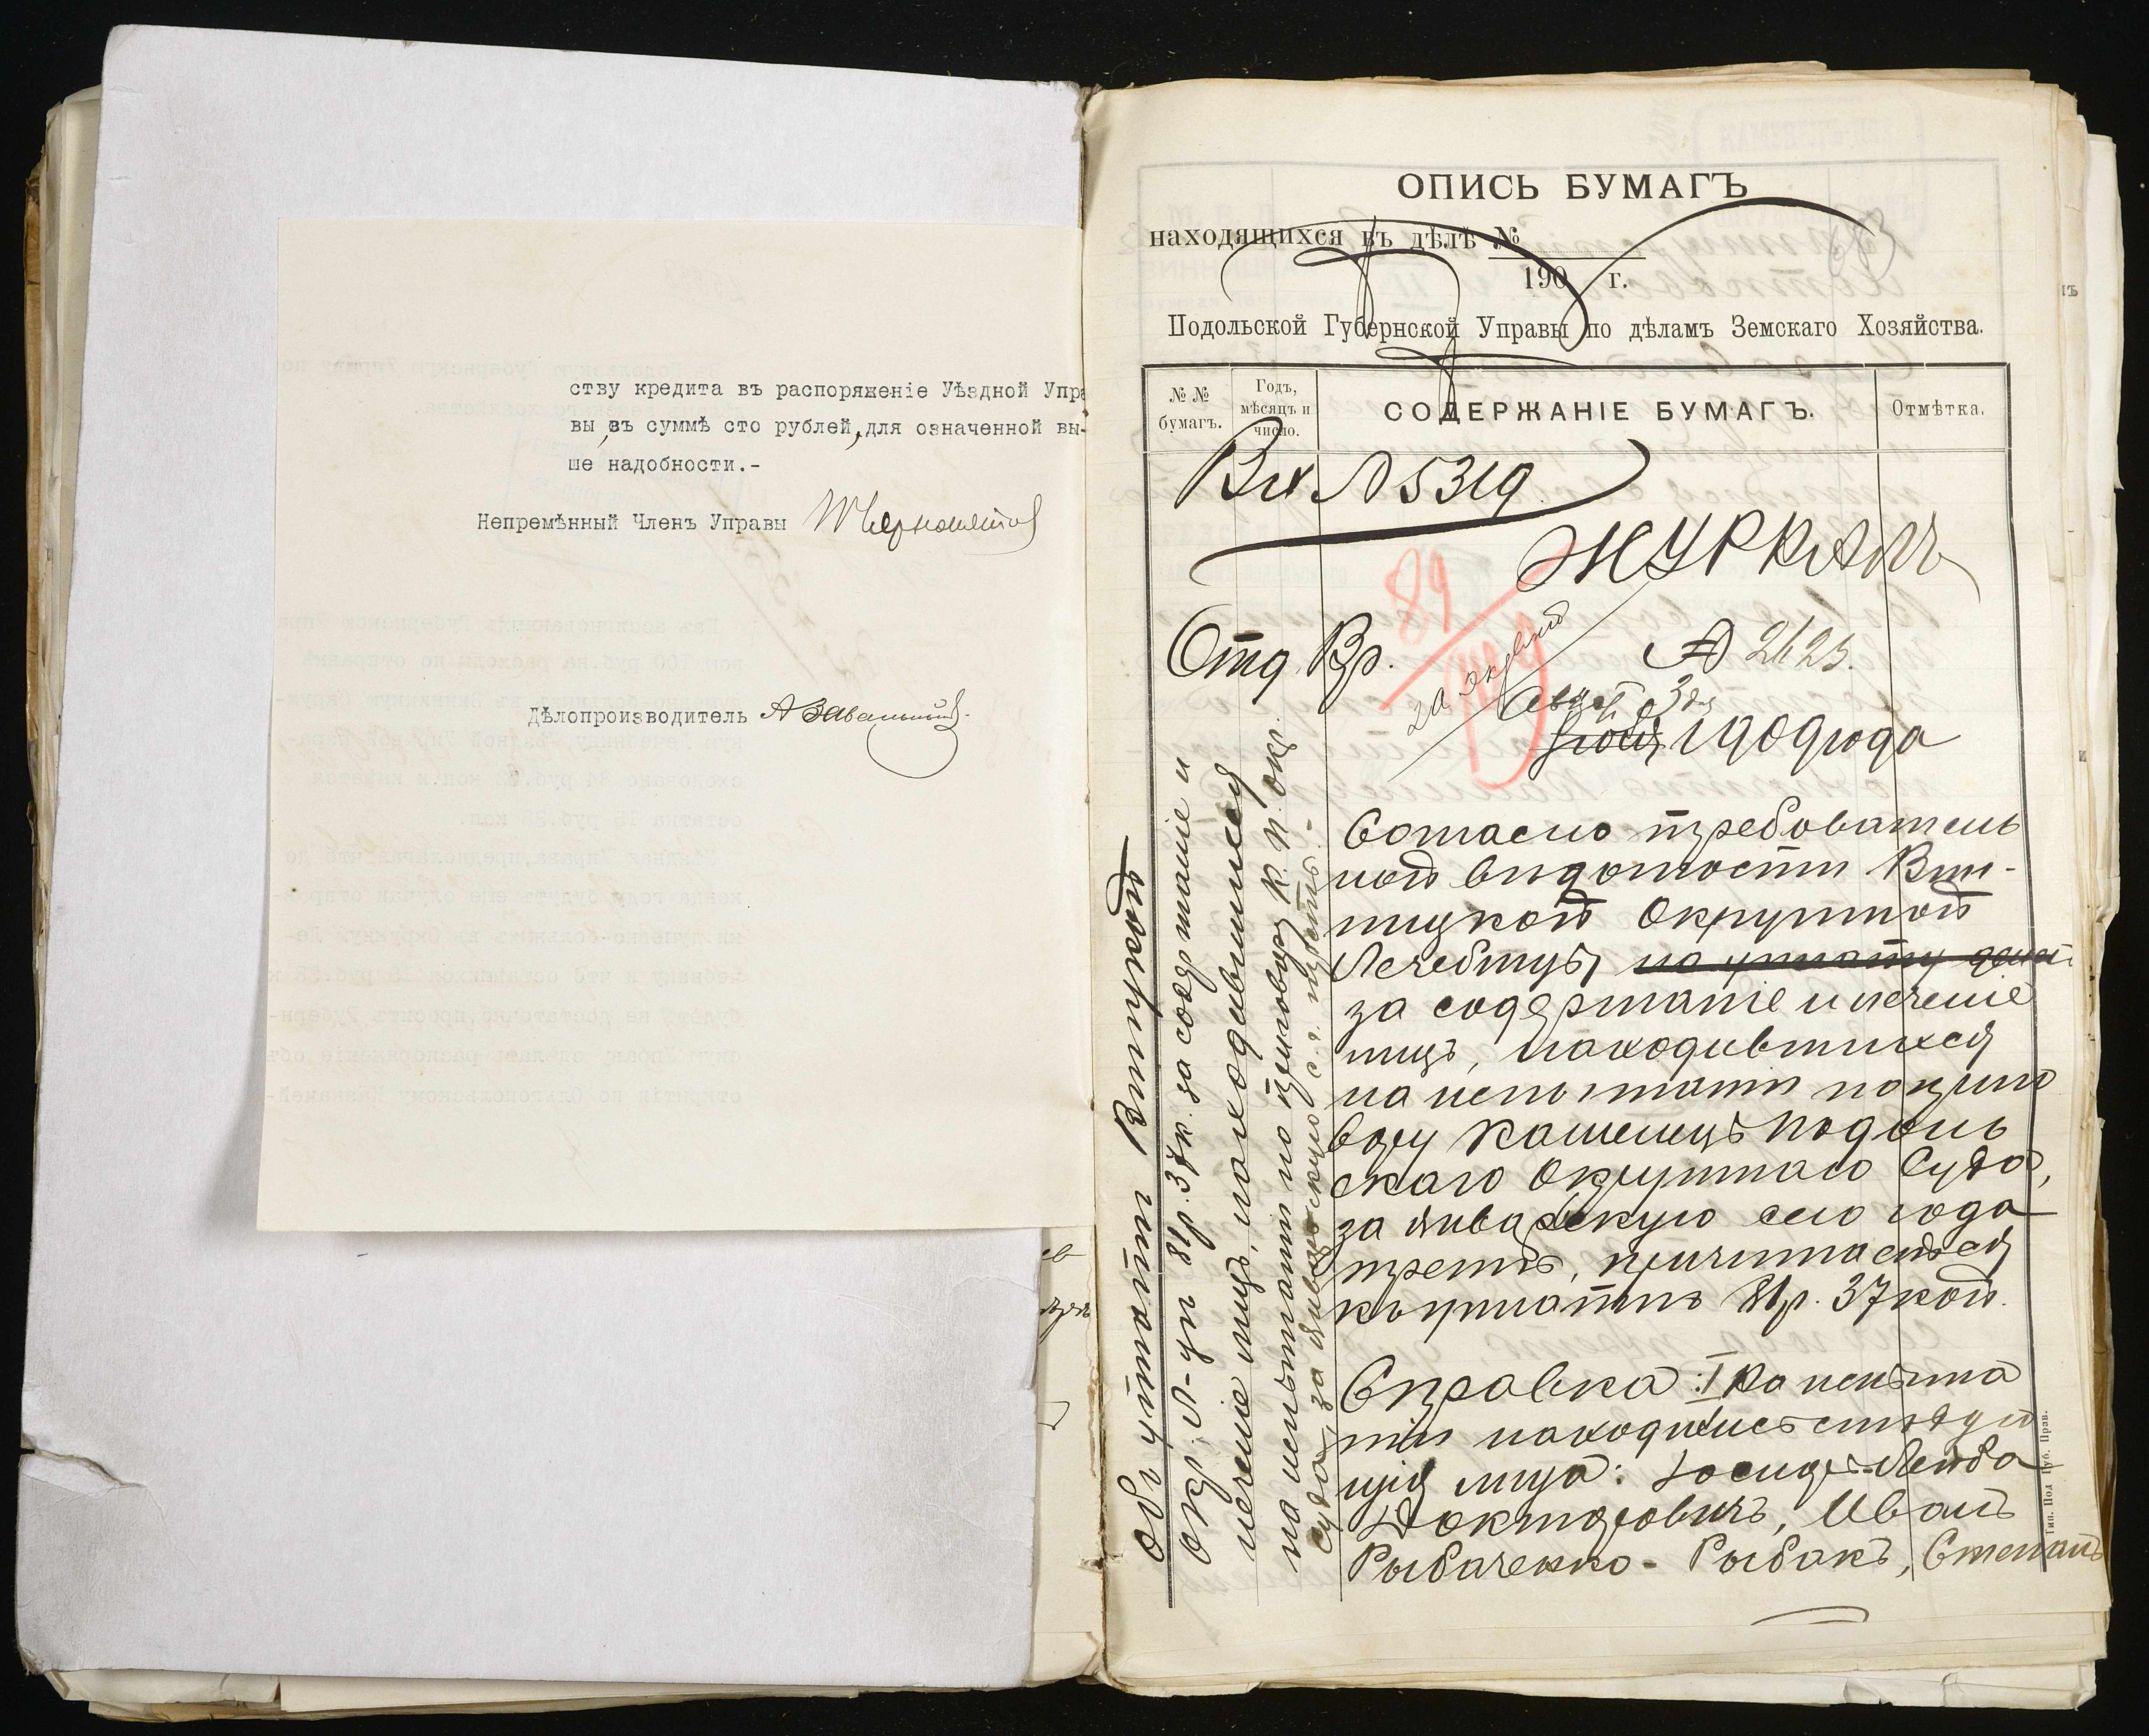 ству кредита въ распоряженіе Уѣздной Упра
вы, въ суммѣ сто рублей, для означенной вы-
ше надобности.-
Непремѣнный Членъ Управы
Дѣлопроизводитель
ОПИСЬ БУМАГЪ
находящихся въ дѣлѣ №
190 г.
Подольской Губернской Управы по дѣламъ Земскаго Хозяйства.
№ № бумагъ.
Годъ, мѣсяцъ и число.
СОДЕРЖАНІЕ БУМАГЪ.
Отмѣтка.
Вх №5319
ЖУРНАЛЪ
89
Отд. Вр.
№ 2123.
Август 3 дня
1909 года
Согласно требователь
ной вѣдомости Вин-
ницкой Окружной
Лечебницы на уплату денег
за содержаніе и леченіе
лицъ, находившихся
на испытаніи по приго
вору Каменецъ Подоль
скаго Окружнаго Суда,
за январскую сего года
треть, причитается
къ уплатѣ 81р. 37 коп.
Справка: I На испыта
ніи находились слѣдую
щія лица: Іосидъ-Лейба
Докторовичъ, Иванъ
Рыбаченко-Рыбакъ, Степанъ
Объ уплатѣ Винницкой
окр. л-цѣ 81р. 37к. за содержаніе и
леченіе лицъ, находившихся
на испытаніи по приговору К. П. окр.
суда, за январскую с.г. треть.-
Тип. Под Губ. Прав.